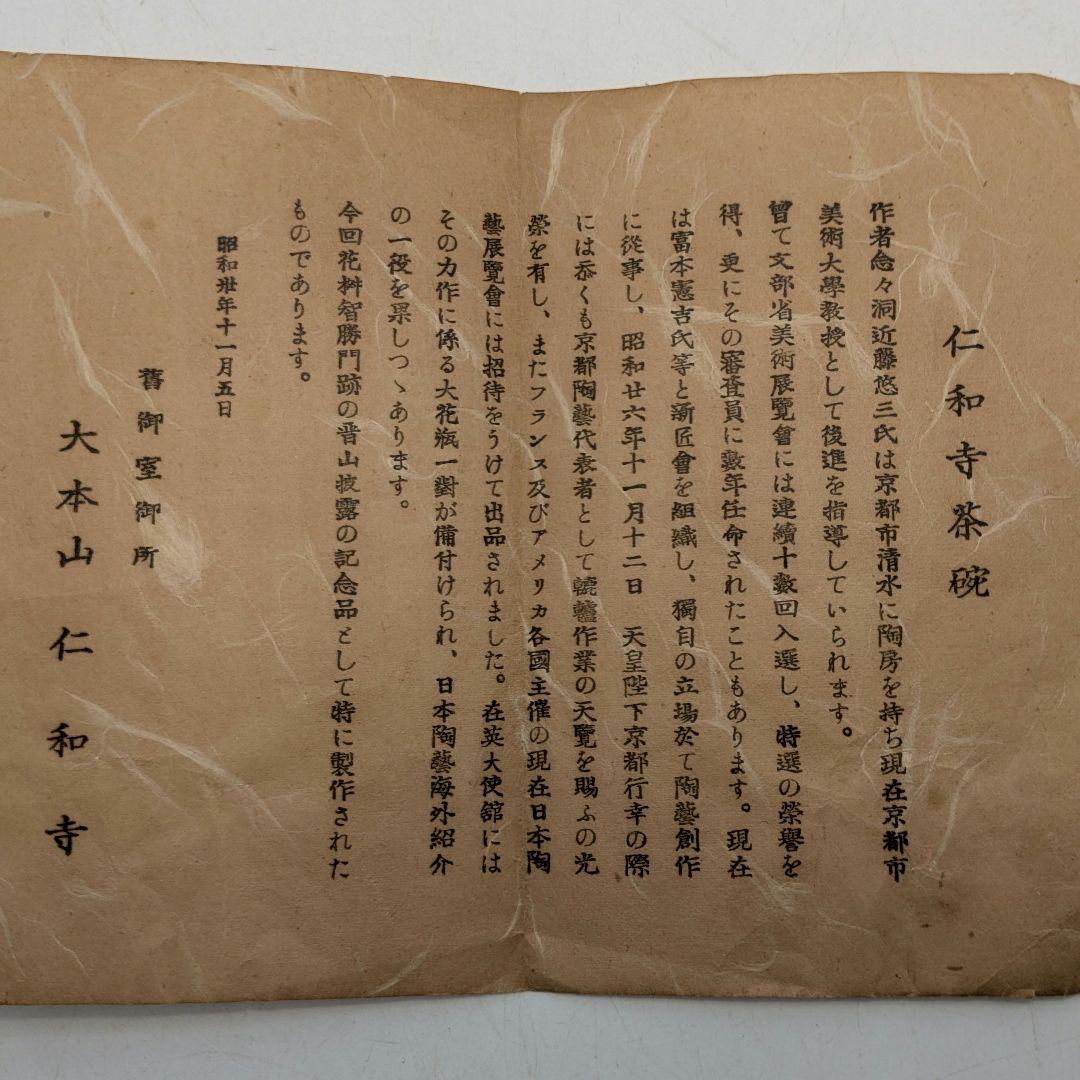 仁和寺茶碗
作者念々洞近藤悠三氏は京都市清水に陶房を持ち現在京都市
美術大學教授として後進を指導していられます。
曾て文部省美術展覽會には連續十數回入選し、特選の榮譽を
得、更にその審査員に數年任命されたこともあります。現在
は富本憲吉氏等と新匠會を組織し、獨自の立場於て陶藝創作
に從事し、昭和廿六年十一月十二日 天皇陛下京都行幸の際
には忝くも京都陶藝代表者として轆轤作業の天覽を賜ふの光
榮を有し、またフランス及びアメリカ各國主催の現在日本陶
藝展覽會には招待をうけて出品されました。在英大使舘には
その力作に係る大花瓶一對が備付けられ、日本陶藝海外紹介
の一役を果しつゝあります。
今回花桝智勝門跡の晋山披露の記念品として特に製作された
ものであります。
昭和卅年十一月五日
舊御室御所
大本山 仁和寺